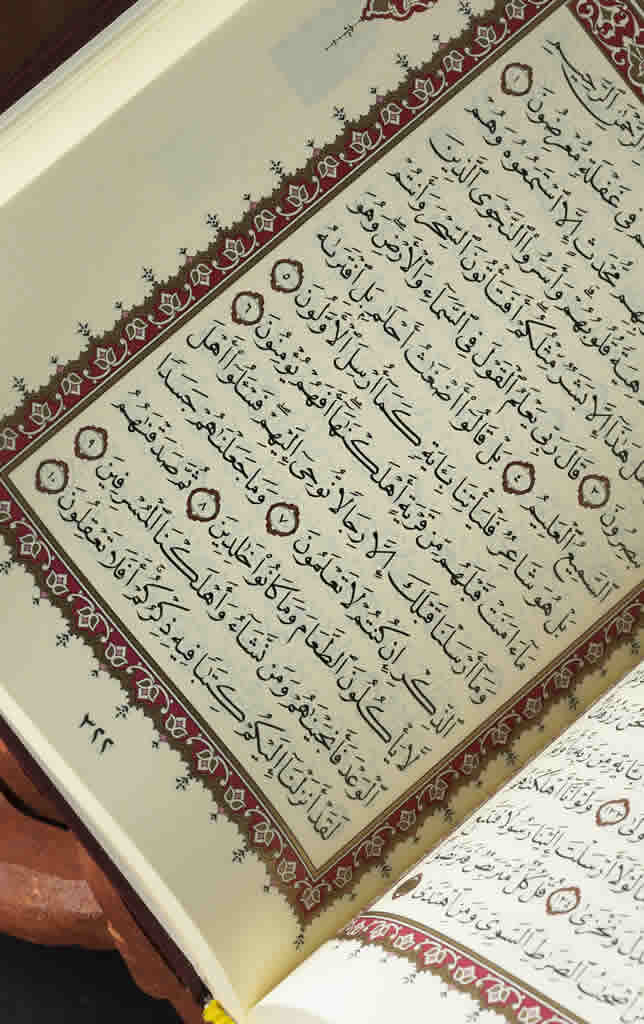 الرَّحْمَٰنِ الرَّحِيمِ
فِى غَفْلَةٍ مُّعْرِضُونَ ١
مُّحْدَثٍ إِلَّا ٱسْتَمَعُوهُ وَهُمْ
قُلُوبُهُمْ ۗ وَأَسَرُّوا۟ ٱلنَّجْوَى ٱلَّذِينَ
هَلْ هَٰذَآ إِلَّا بَشَرٌ مِّثْلُكُمْ ۖ أَفَتَأْتُونَ ٱلسِّحْرَ وَأَنتُمْ
تُبْصِرُونَ ٣ قَالَ رَبِّى يَعْلَمُ ٱلْقَوْلَ فِى ٱلسَّمَآءِ وَٱلْأَرْضِ ۖ وَهُوَ
ٱلسَّمِيعُ ٱلْعَلِيمُ ٤ بَلْ قَالُوٓا۟ أَضْغَٰثُ أَحْلَٰمٍۭ بَلِ ٱفْتَرَىٰهُ
بَلْ هُوَ شَاعِرٌ فَلْيَأْتِنَا بِـَٔايَةٍ كَمَآ أُرْسِلَ ٱلْأَوَّلُونَ ٥
مَآ ءَامَنَتْ قَبْلَهُم مِّن قَرْيَةٍ أَهْلَكْنَٰهَآ ۖ أَفَهُمْ يُؤْمِنُونَ ٦
وَمَآ أَرْسَلْنَا قَبْلَكَ إِلَّا رِجَالًا نُّوحِىٓ إِلَيْهِمْ ۖ فَسْـَٔلُوٓا۟ أَهْلَ
ٱلذِّكْرِ إِن كُنتُمْ لَا تَعْلَمُونَ ٧ وَمَا جَعَلْنَٰهُمْ جَسَدًا
لَّا يَأْكُلُونَ ٱلطَّعَامَ وَمَا كَانُوا۟ خَٰلِدِينَ ٨ ثُمَّ صَدَقْنَٰهُمُ
ٱلْوَعْدَ فَأَنجَيْنَٰهُمْ وَمَن نَّشَآءُ وَأَهْلَكْنَا ٱلْمُسْرِفِينَ ٩
لَقَدْ أَنزَلْنَآ إِلَيْكُمْ كِتَٰبًا فِيهِ ذِكْرُكُمْ ۖ أَفَلَا تَعْقِلُونَ ١٠
٣٢٢
١٣٣ وَلَوْ أَنَّآ أَهْلَكْنَٰهُم
لَوْلَآ أَرْسَلْتَ إِلَيْنَا رَسُولًا فَنَتَّبِعَ
وَنَخْزَىٰ ١٣٤ قُلْ كُلٌّ مُّتَرَبِّصٌ فَتَرَبَّصُوا۟
أَصْحَٰبُ ٱلصِّرَٰطِ ٱلسَّوِىِّ وَمَنِ ٱهْتَدَىٰ